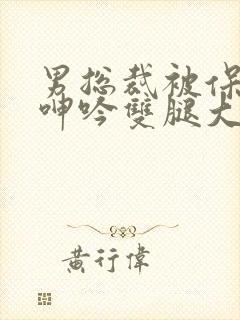 男总裁被保
呻吟雙腿大
黄行偉